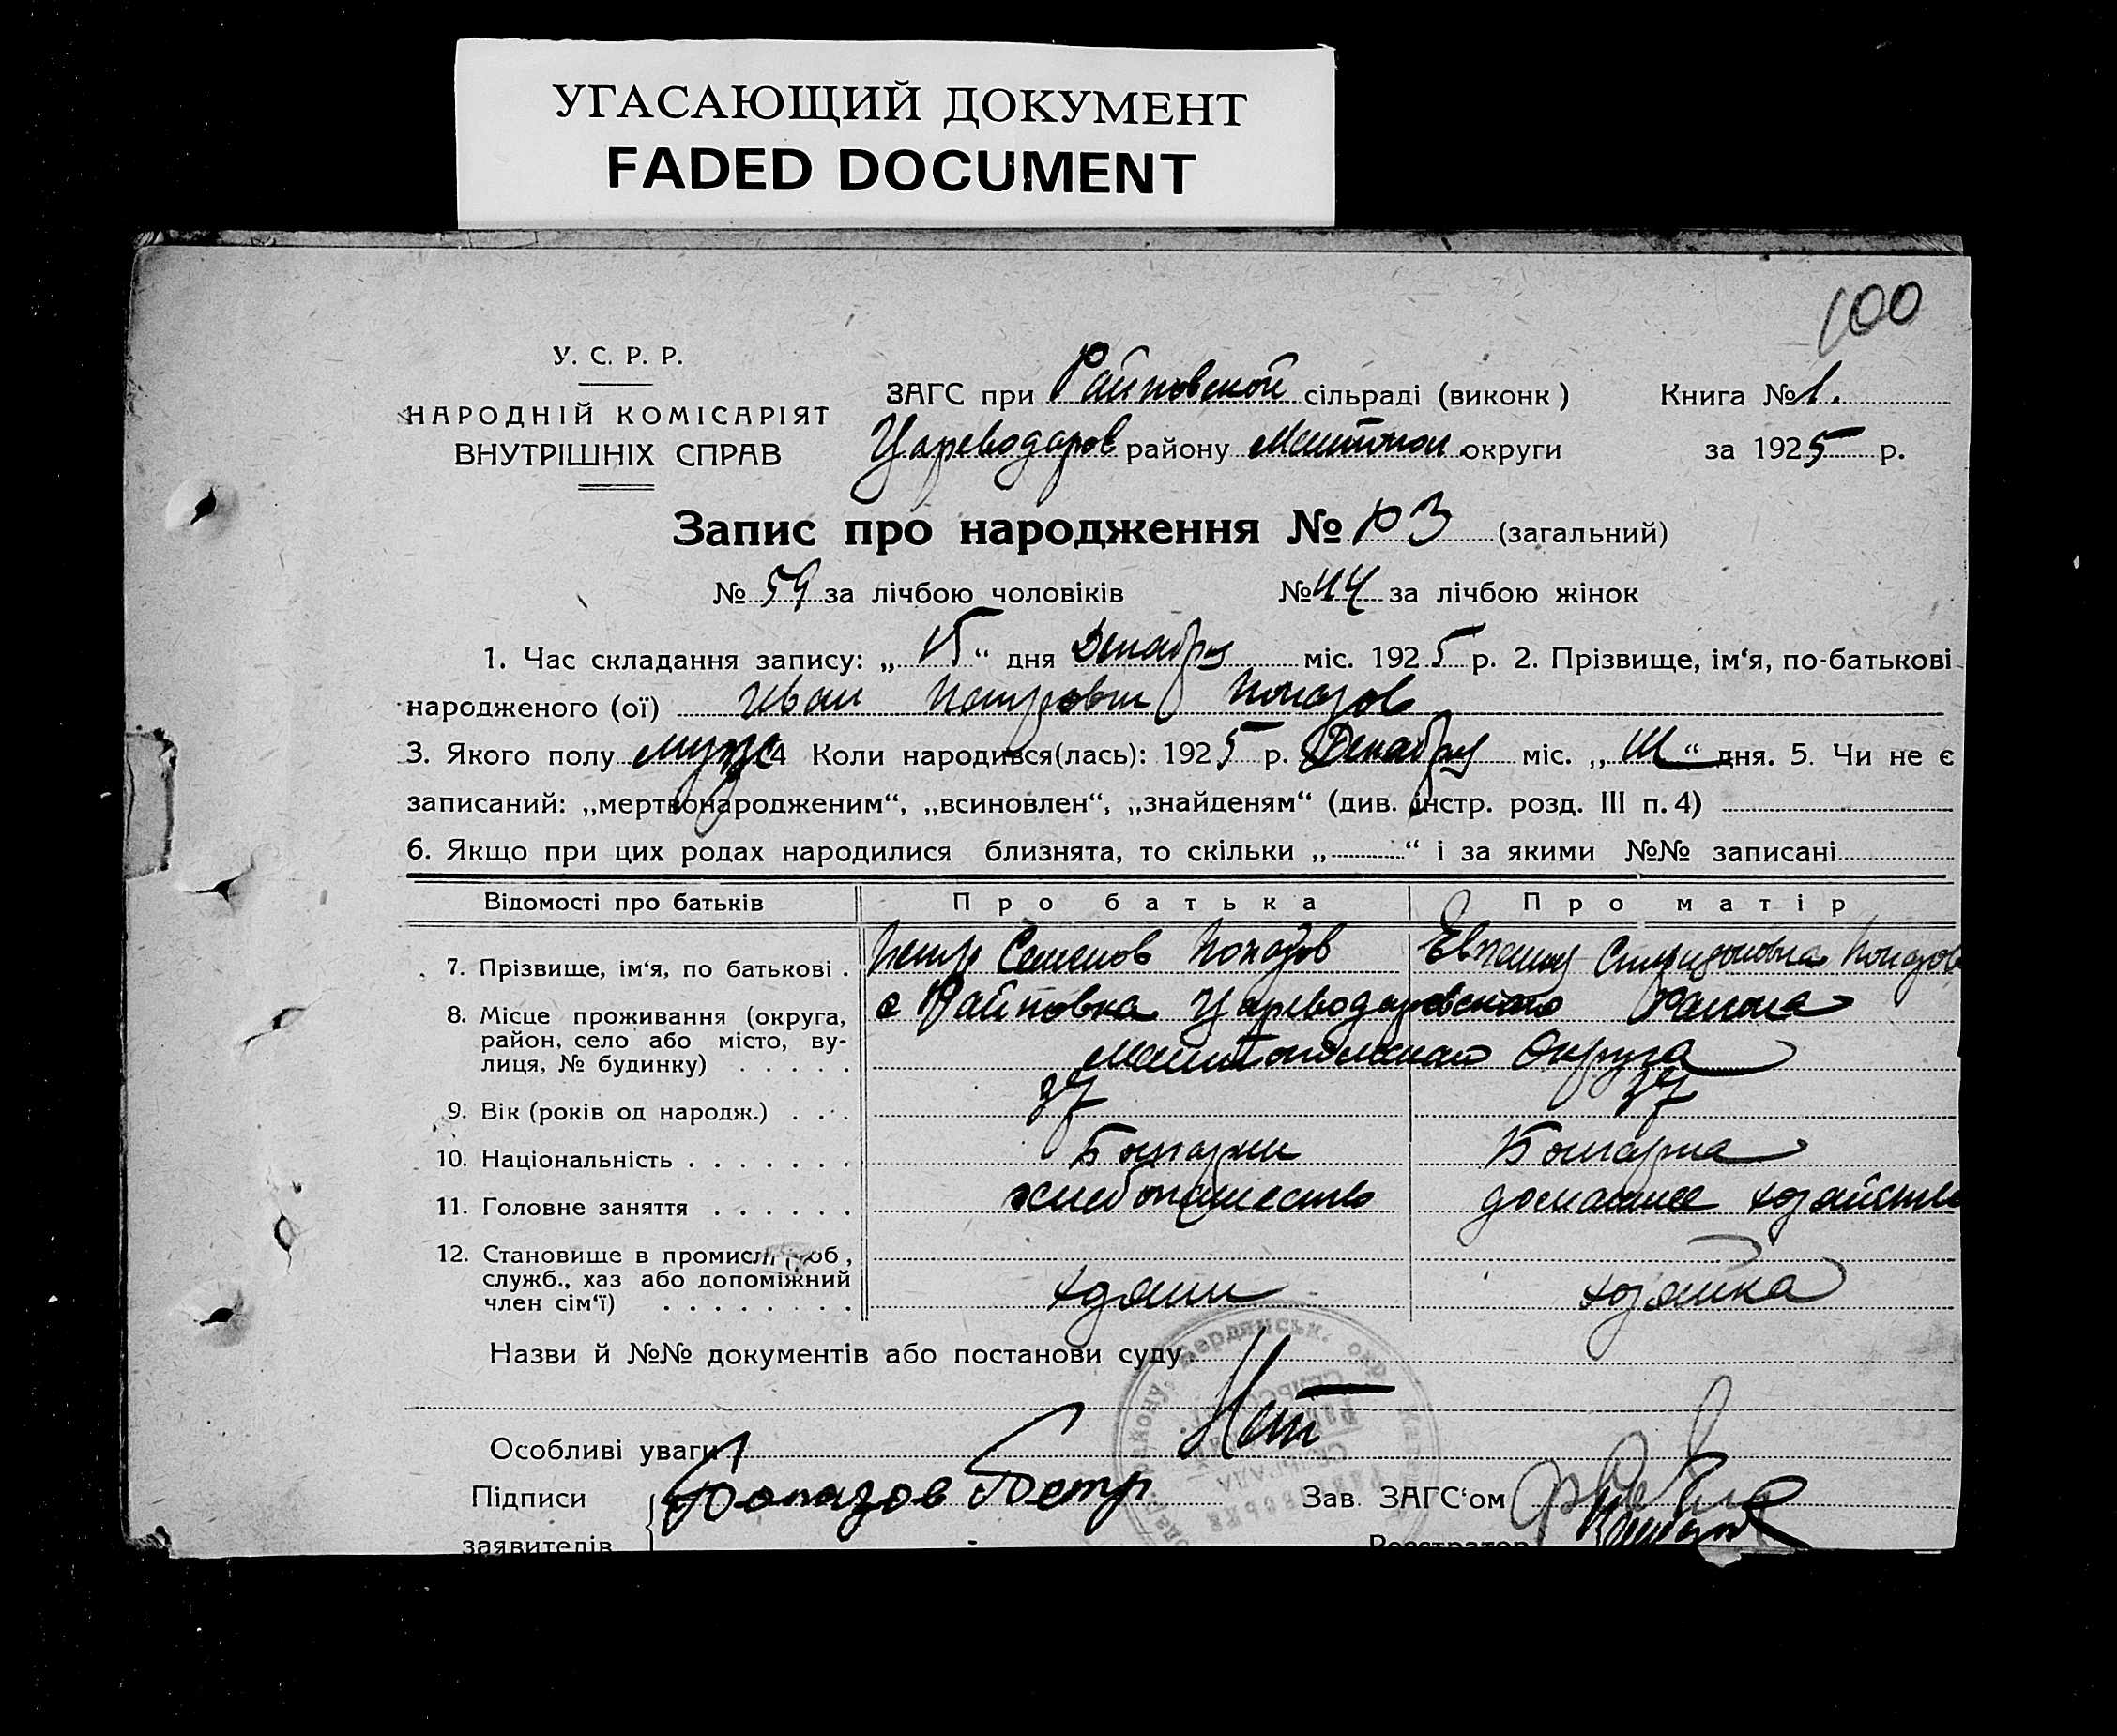 УГАСАЮЩИЙ ДОКУМЕНТ
FADED DOCUMENT
100
У. С. Р. Р.
НАРОДНІЙ КОМІСАРІЯТ
ВНУТРІШНІХ СПРАВ
ЗАГС при Райновской сільраді (виконк)
Цареводаров району округи
Книга № 1.
за 1925 р.
Запис про народження № 103 (загальний)
№ 59 за лічбою чоловіків № 44 за лічбою жінок
1. Час складання запису: „15“ дня Декабря міс. 1925 р. 2. Прізвище, ім‘я, по-батькові
народженого (ої) Иван Петрович Попазов
3. Якого полу муж 4 Коли народився(лась): 1925 р. Декабря міс. „ “ дня. 5. Чи не є
записаний: „мертвонародженим“, „всиновлен“, „знайденям“ (див. інстр. розд. III п. 4)
6. Якщо при цих родах народилися близнята, то скільки „ “ і за якими №№ записані
Відомості про батьків Про батька Про матір
7. Прізвище, ім‘я, по батькові . Петр Семенов Попазов Спиридоновна Попазов
8. Місце проживання (округа, с Райновка Цареводаровского Района
район, село або місто, ву-
лиця, № будинку) . . . . . Мелитопольского Округа
9. Вік (років од народж.) . . . 37 37
10. Національність . . . . . . . Болгарин Болгарка
11. Головне заняття . . . . . . хлебопашество домашнее хозяйство
12. Становище в промисл роб.,
служб., хаз або допоміжний
член сім‘ї) . . . . . . . . хозяин хозяйка
Назви й №№ документів або постанови суду
Особливі уваги Нет
Підписи Попазов Петр Зав. ЗАГС‘ом
заявителів Реєстратор
Бердянськ. окр.